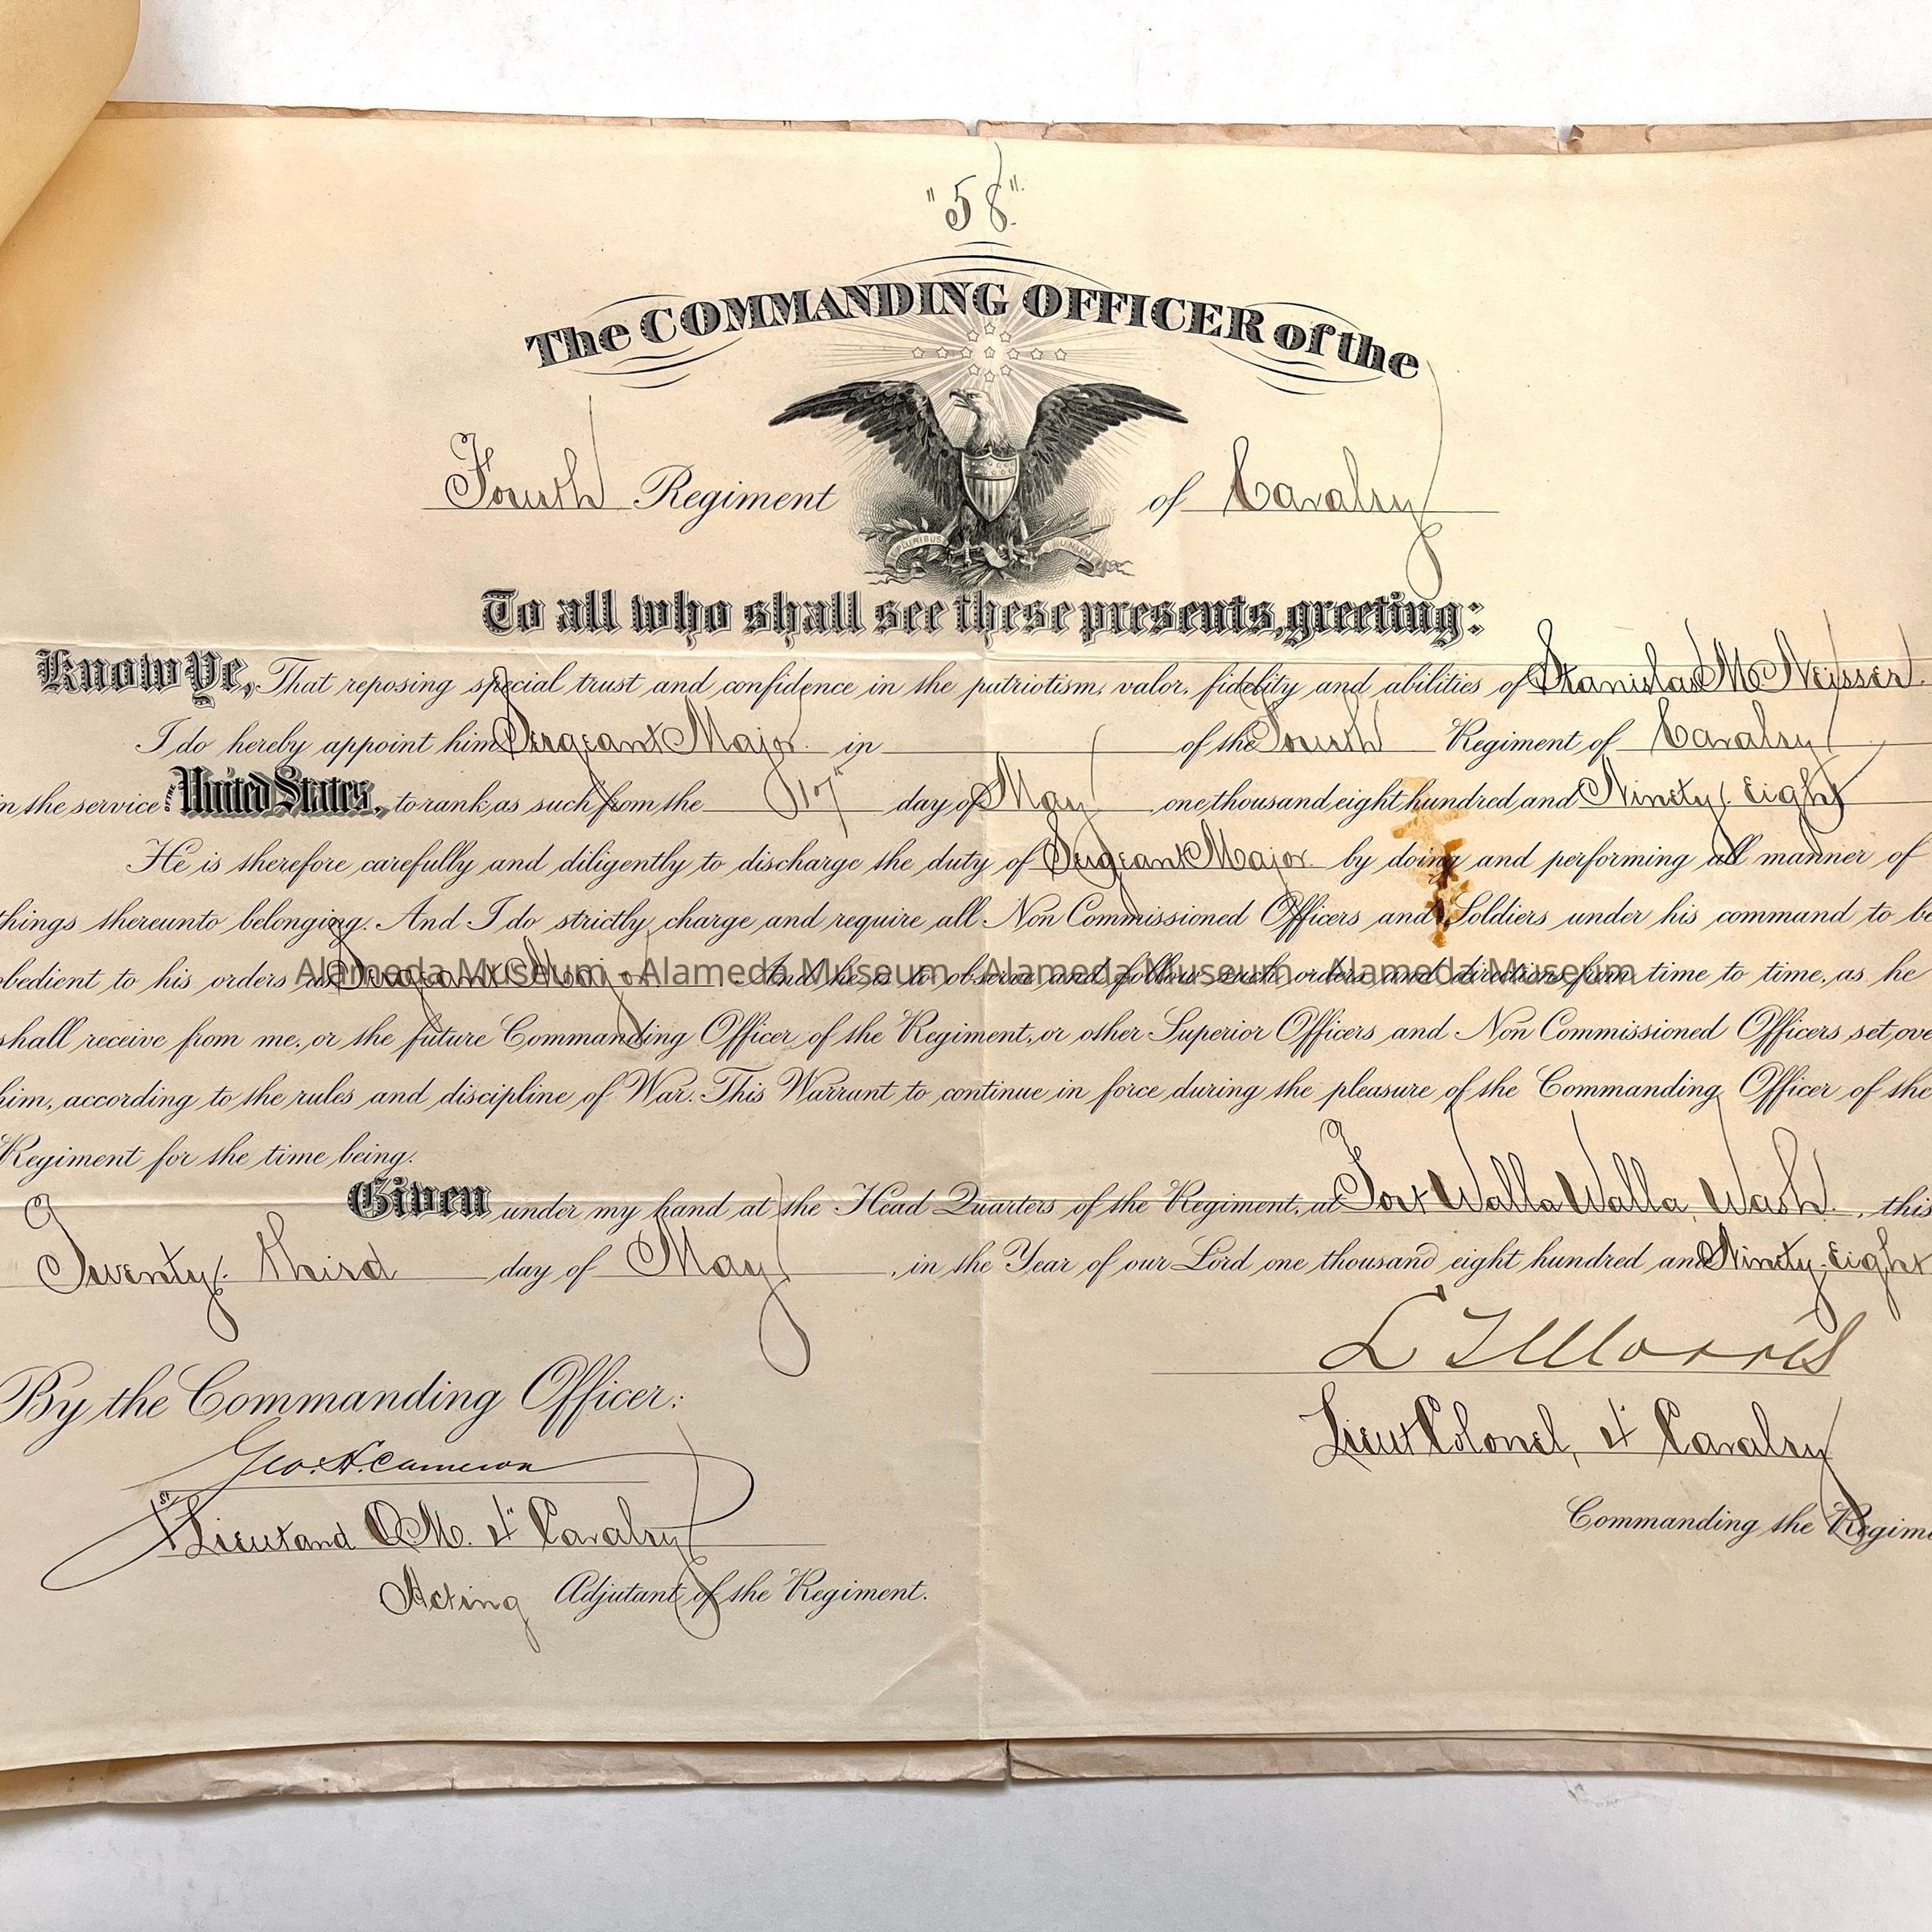 "58".
The COMMANDING OFFICER of the
E PLURIBUS UNUM
Fourth Regiment of Cavalry
To all who shall see these presents, greeting:
Know Ye, That reposing special trust and confidence in the patriotism, valor, fidelity and abilities of Stanislas M Neissert.
I do hereby appoint him Sergeant Major. in of the Fourth Regiment of Cavalry
in the service United States, to rank as such from the 17" day of May one thousand eight hundred and Ninety Eight
He is therefore carefully and diligently to discharge the duty of Sergeant Major. by doing and performing all manner of
things thereunto belonging. And I do strictly charge and require all Non Commissioned Officers and Soldiers under his command to be
obedient to his orders as Sergeant Major. And he is to observe and follow such orders and directions from time to time, as he
Alameda Museum - Alameda Museum - Alameda Museum - Alameda Museum
shall receive from me, or the future Commanding Officer of the Regiment, or other Superior Officers and Non Commissioned Officers set, ove
him, according to the rules and discipline of War. This Warrant to continue in force during the pleasure of the Commanding Officer of the
Regiment for the time being.
Given under my hand at the Head Quarters of the Regiment, at Fort Walla Walla, Wash. , this
Twenty third day of May , in the Year of our Lord one thousand eight hundred and Ninety-Eight
L T Morris
Lieut Colonel, 4" Cavalry
Commanding the Regim
By the Commanding Officer:
Geo. H. Cameron
1st Lieut and Q M. 4" Cavalry
Acting Adjutant of the Regiment.